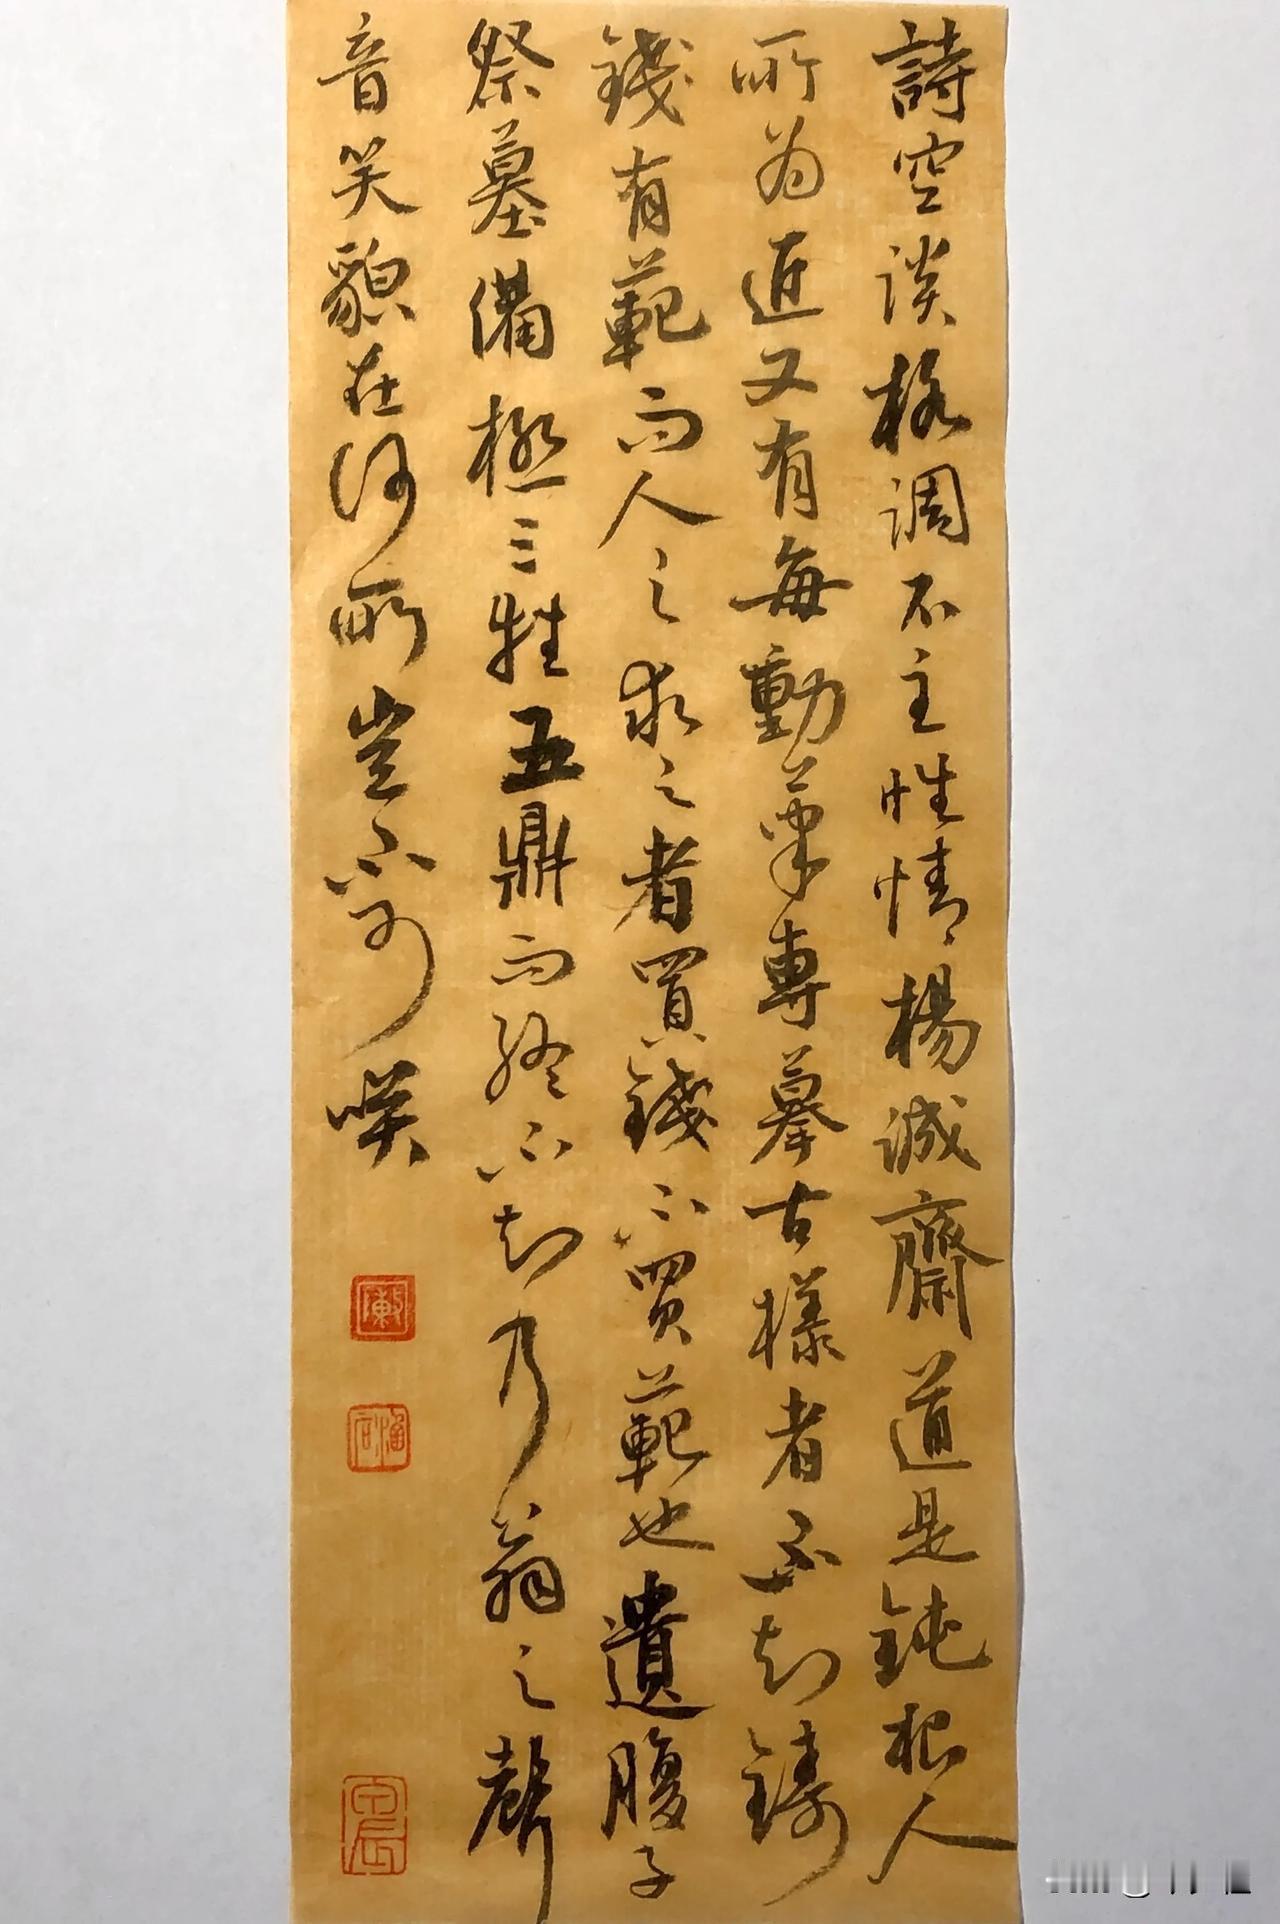 詩空談格調不主性情楊誠齋道是鈍根人
所為近又有每動筆專摹古樣者不知鑄
錢有範而人之求之者買錢不買範也遺腹子
祭墓備極三牲五鼎而終不知乃翁之聲
音笑貌在何所豈不可咲